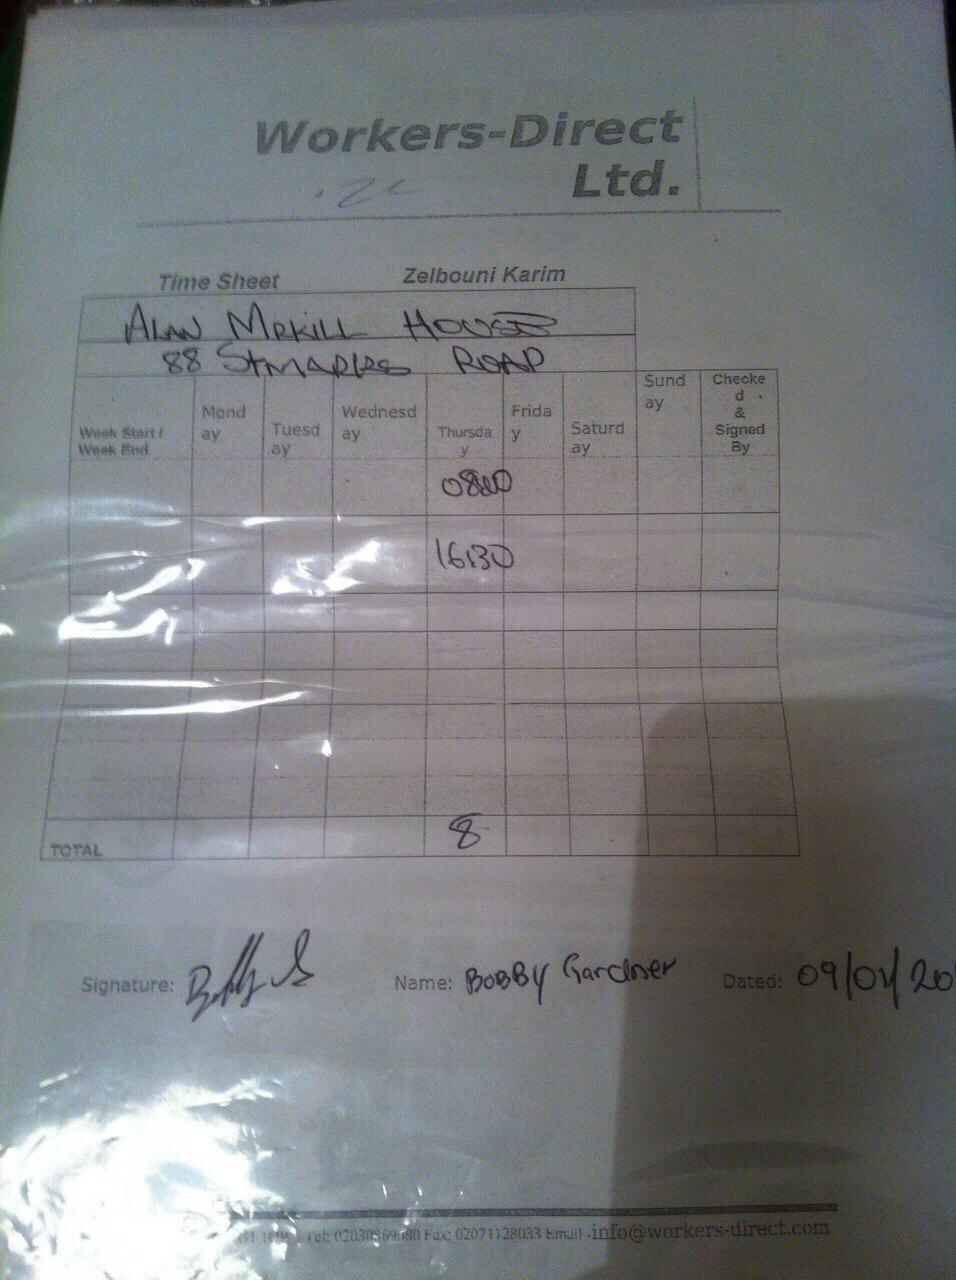 Workers-Direct
Ltd.
Time Sheet Zelbouni Karim
ALAN MRKILL HOUSE
88 STMARKS ROAD
Week Start / Week End
Mond ay
Tuesd ay
Wednesd ay
Thursda y
Frida y
Saturd ay
Sund ay
Checke d & Signed By
16:30
TOTAL 8
Signature: Name: BOBBY Gardner Dated: 09/01/20
Tel: Fax: 02071128033 Email -info@workers-direct.com